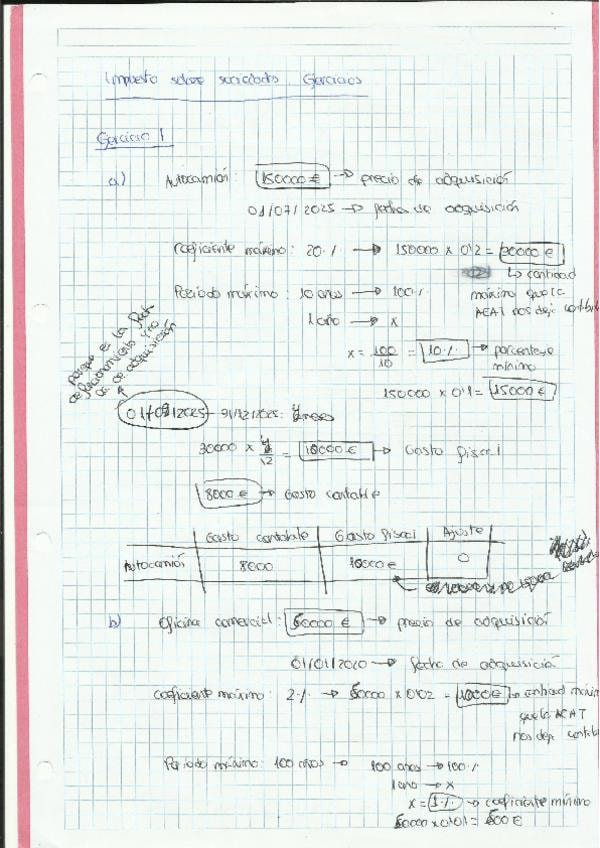 Impuesto sobre sociedades. Ejercicios
Ejercicio 1
a) Autocamión: 150000 € → precio de adquisición
01/07/2025 → fecha de adquisición
Coeficiente máximo: 20% → 150000 x 0'2 = 30000 €
↳ cantidad
Período máximo: 10 años → 100%
máximo que la
AEAT nos deje contabi
1 año → x
x = 100/10 = 10% → porcentaje
mínimo
150000 x 0'1 = 15000 €
porque es la fecha
de funcionamiento y no
la de adquisición
01/09/2025 - 31/12/2025: 4 meses
30000 x 4/12 = 10000 € → Gasto fiscal
8000 € → Gasto contable
Gasto contable Gasto fiscal Ajuste
Autocamión 8000 10000 € 0
b) Oficina comercial: 50000 € → precio de adquisición
01/01/2010 → fecha de adquisición
Coeficiente máximo: 2% → 50000 x 0'02 = 1000 € → cantidad máxim
que la AEAT
nos deje contabi
Período máximo: 100 años → 100 años → 100%
1 año → x
x = 1% → coeficiente mínimo
50000 x 0'01 = 500 €